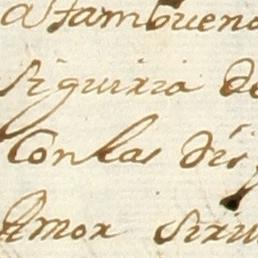 atambueno
siguiria de
Con las dis
Amor seru